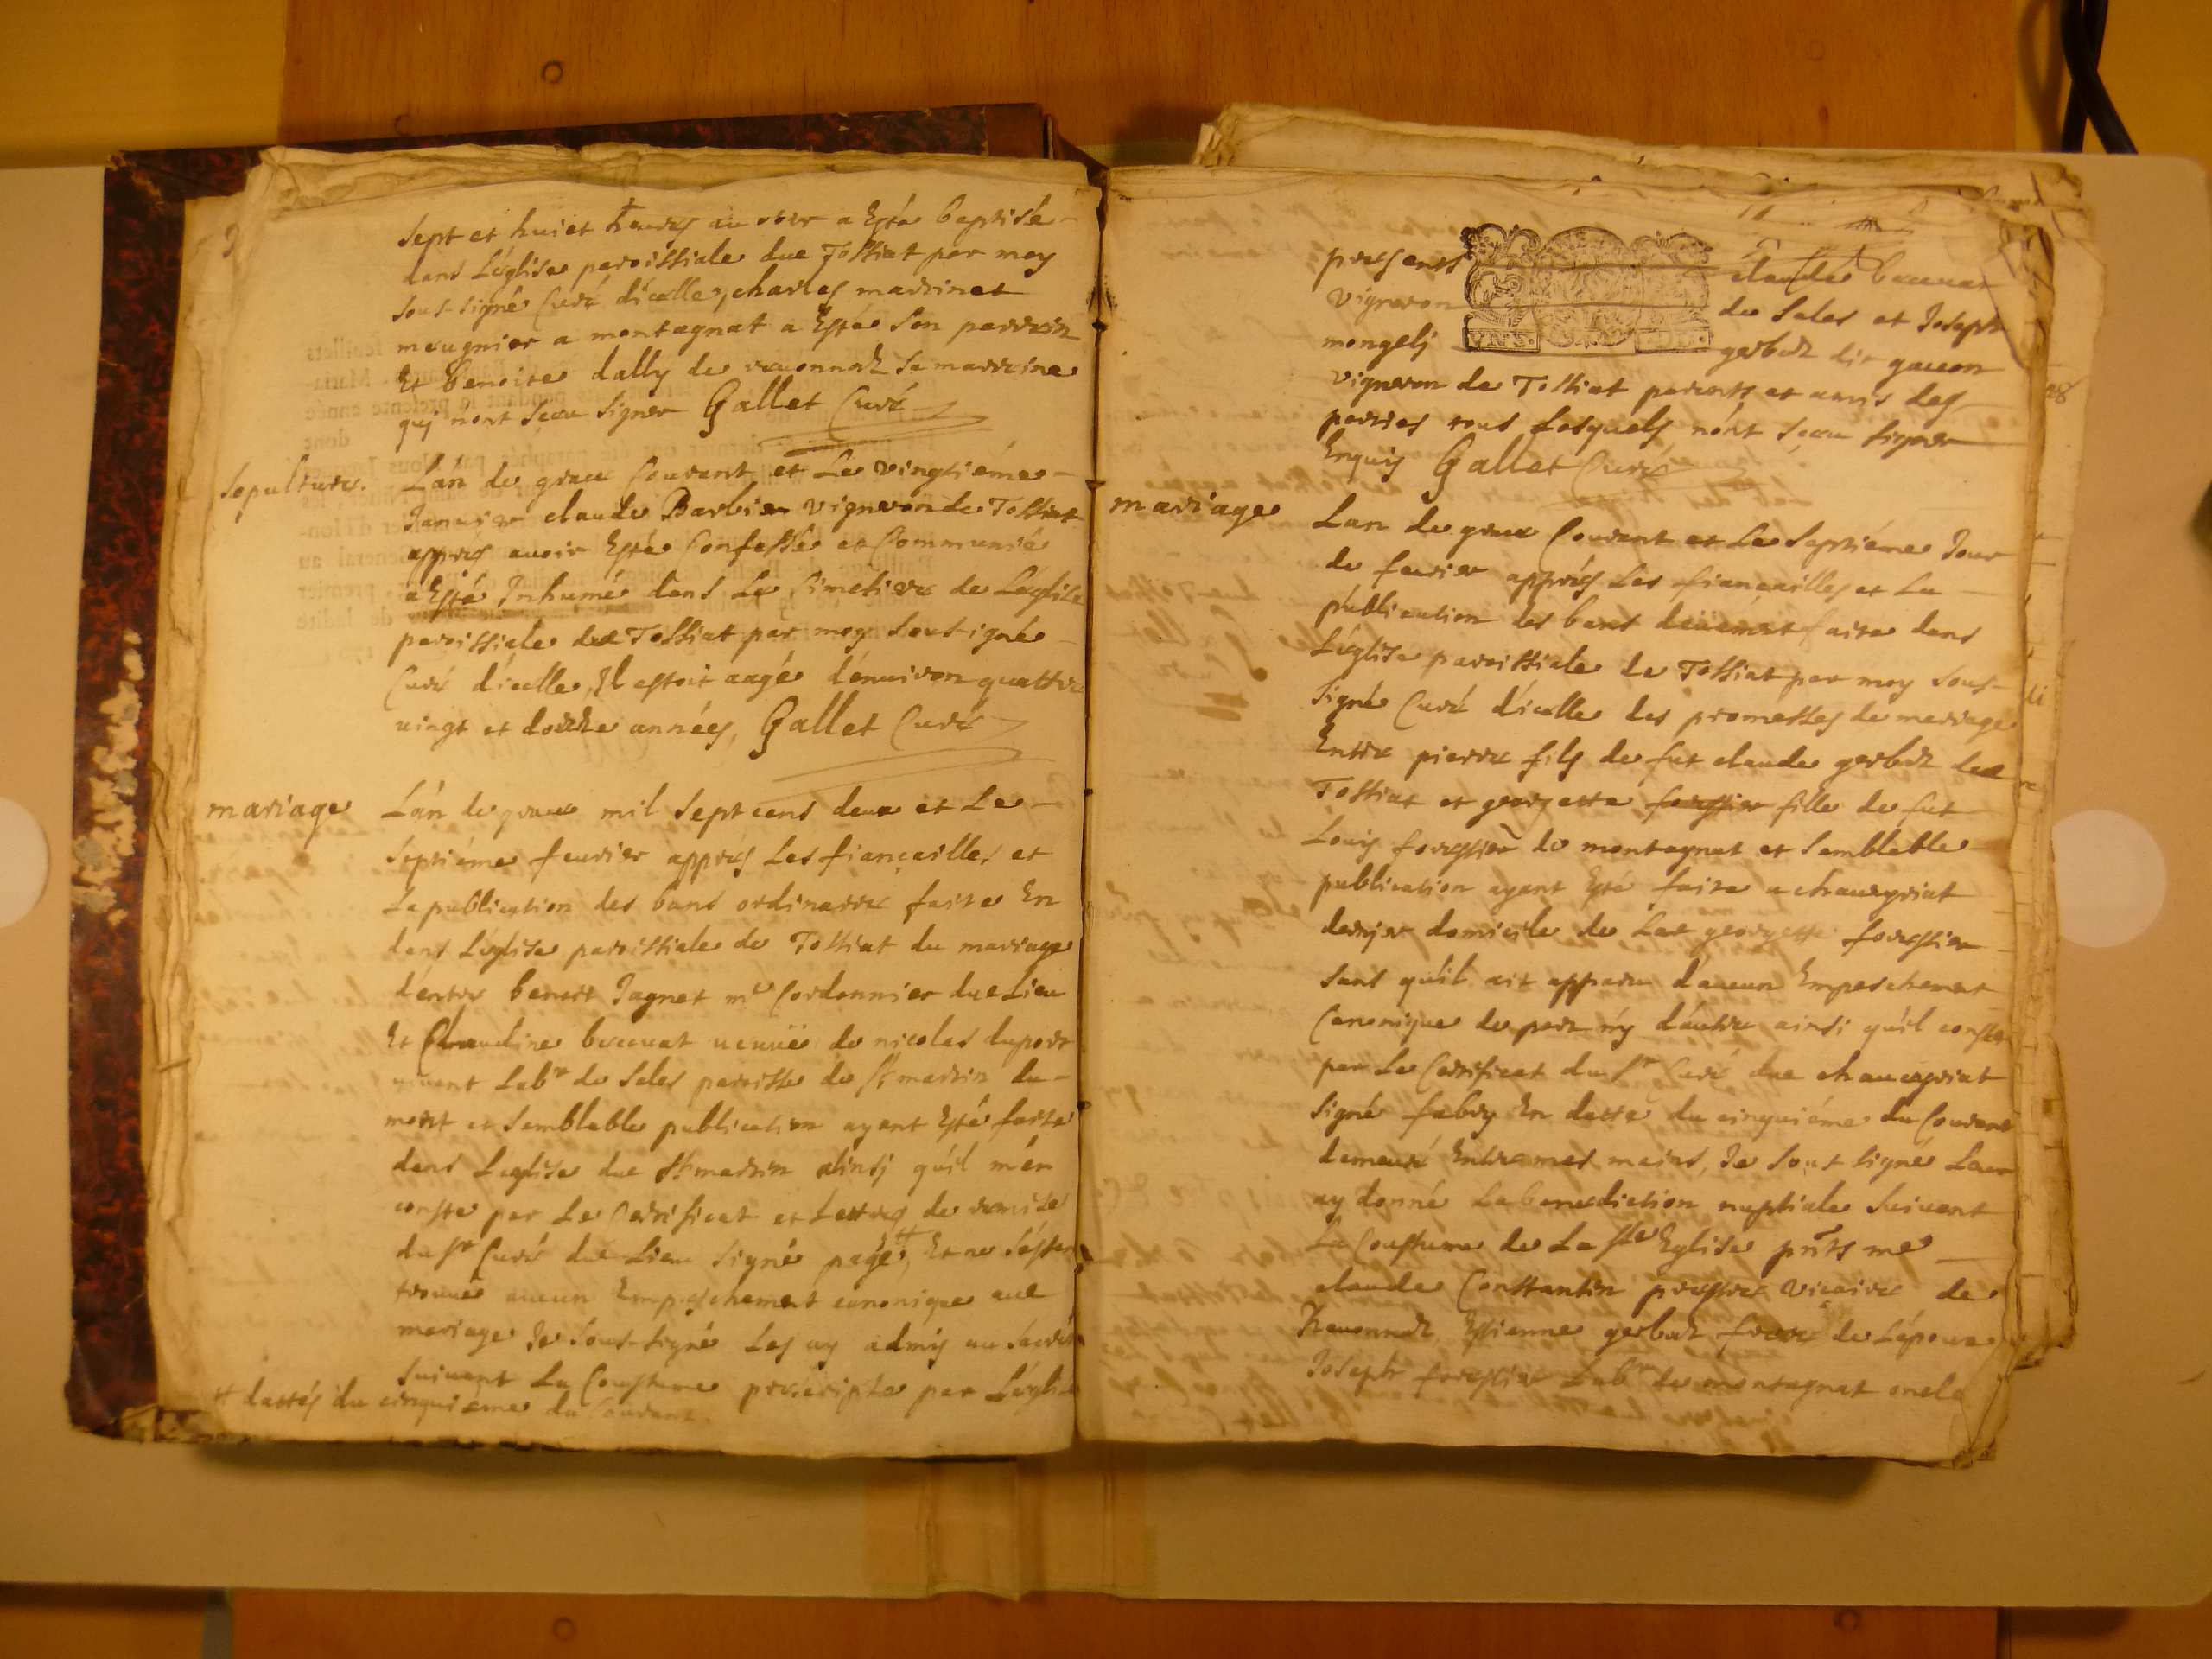 sept et huict heures au soir a Esté baptisée
dans L'église paroissiale due Tossiat par moy
sous-signé Curé dicelle, charles marrinet
meugnier a montagnat a Esté son parrain
Et benoite dally de reuonnaz sa marraine
quj n'ont sceu signer Gallet Curé
sepulture. L'an de grace Courant et Le vingtiéme
Januier claude Barbier vigneron de Tossiat
apprés auoir Esté Confessé et Communié
a Esté Inhumé dans Le Cimetiere de L'église
paroissiale due Tossiat par moy sousigné
Curé d'icelle, Il estoit aagé d'enuiron quattre
uingt et douze années, Gallet Curé
mariage L'an de grace mil sept cens deux et Le
septiéme feurier apprés Les fiançailles et
La publication des bans ordinaire faite En
dans L'église paroissiale de Tossiat du mariage
d'entre benoit Jagnet mtre Cordonnier due Lieu
Et Claudine beccuat ueuue de nicolas duport
uiuant Labr de Sales paroisse de St martin du
mont et semblable publication ayant Esté faite
dans Leglise due St martin ainsj qu'il m'en
conste par Le Certificat et Lettres de remise
du Sr Curé due Lieu signé page, Et ne s'estant
trouué aucun Empeschement canonique aue
mariage Je sous-signé Les ay admis au sacre
suiuant La Coustume prescripte par L'église
# dattés du cinquiéme du Courant.
presents claude beccuat
vigneron de Sales et Joseph
mongelj gerbaz dit gacon
vigneron de Tossiat parents et amis des
parties tous Lesquels n'ont sceu signer
Enquis Gallet Curé
mariage Lan de grace Courant et Le septiéme Jour
de feurier apprés Les fiançailles et La
publication des bans deüement faite dans
L'église paroissiale de Tossiat par moy sous-
signé Curé d'icelle des promesses de mariage
Entre pierre fils de fut claude gerbaz due
Tossiat et georgette forestier fille de fut
Louis forestier de montagnat et semblable
publication ayant Esté faite a chaueyriat
dernier domicile de Lat georgette forestier
sans qu'il ait apparu d'aucun Empeschement
Canonique de part ny d'autre ainsi qu'il conste
par Le Certificat du Sr Curé due chaueyriat
signé fabry En datte du cinquiéme du Courant
demeuré Entre mes mains, Je sout signé Leur
ay donné La benediction nuptiale suiuant
La Coustume de La Ste Eglise pnts me
claude Constantin prestre vicaire de
Reuonnaz, Estienne gerbaz frere de L'époux
Joseph forestier Labr de montagnat oncle